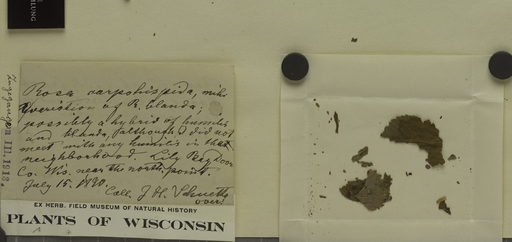 MLUNG
Rosa carpohispida, mihi
variation of R. blanda;
possibly a hybrid of humilis
and blanda, (although I did not
meet with any humilis in that
neighborhood. Lily Bay, Door
Co. Wis. near the north point.
July 15. 1880.
Coll. J. H. Schuette
over
EX HERB. FIELD MUSEUM OF NATURAL HISTORY
PLANTS OF WISCONSIN
III. 1913.